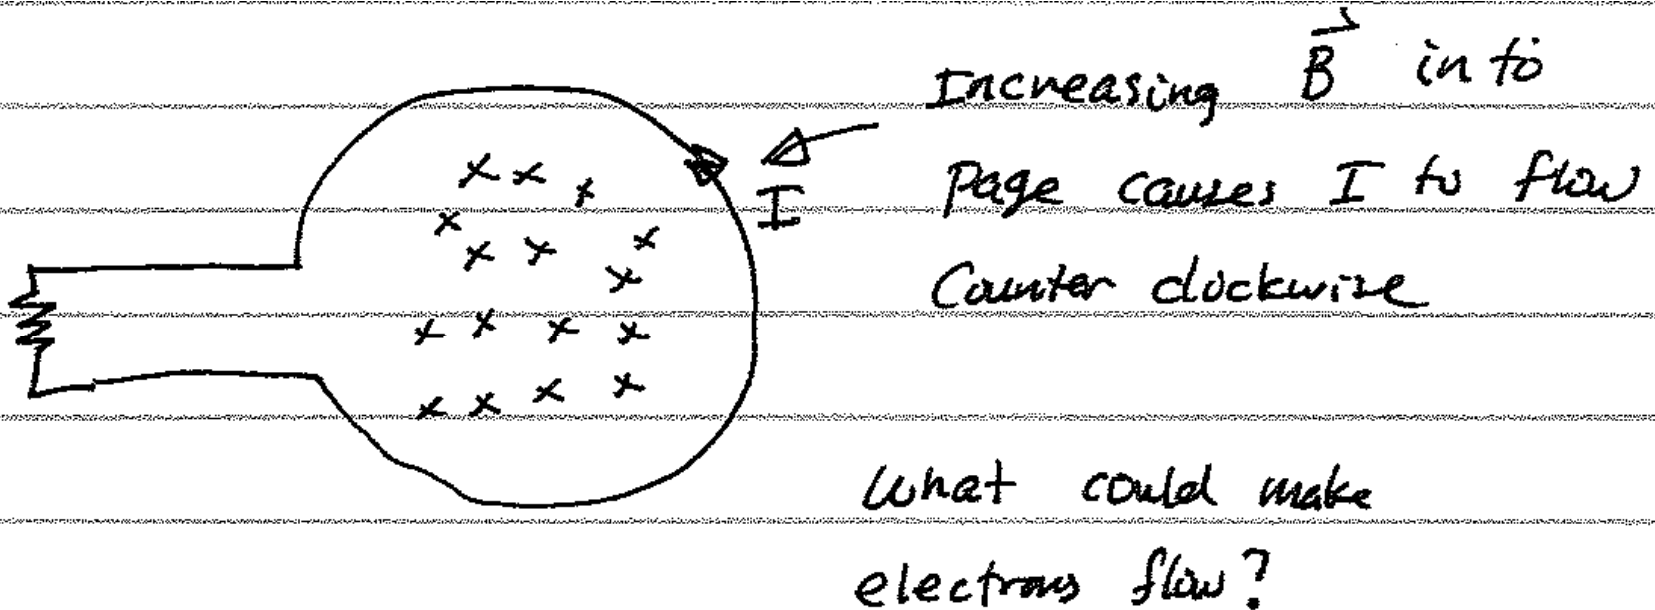 Increasing B⃗ in to
page causes I to flow
Counter clockwise
I
x x x
x
x x x
x
x x x x
x x x x
What could make
electrons flow?